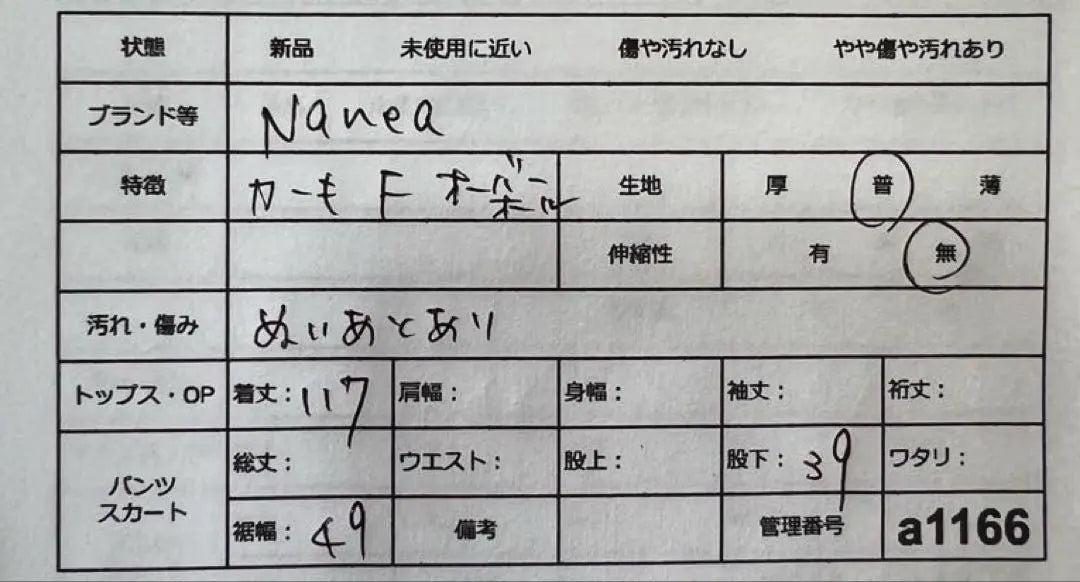 状態 新品 未使用に近い 傷や汚れなし やや傷や汚れあり
ブランド等 Nanea
特徴 カーキ F オーバーオール 生地 厚 普 薄
伸縮性 有 無
汚れ・傷み ぬいあとあり
トップス・OP 着丈：117 肩幅： 身幅： 袖丈： 裄丈：
パンツ スカート 総丈： ウエスト： 股上： 股下：39 ワタリ：
裾幅：49 備考 管理番号 a1166